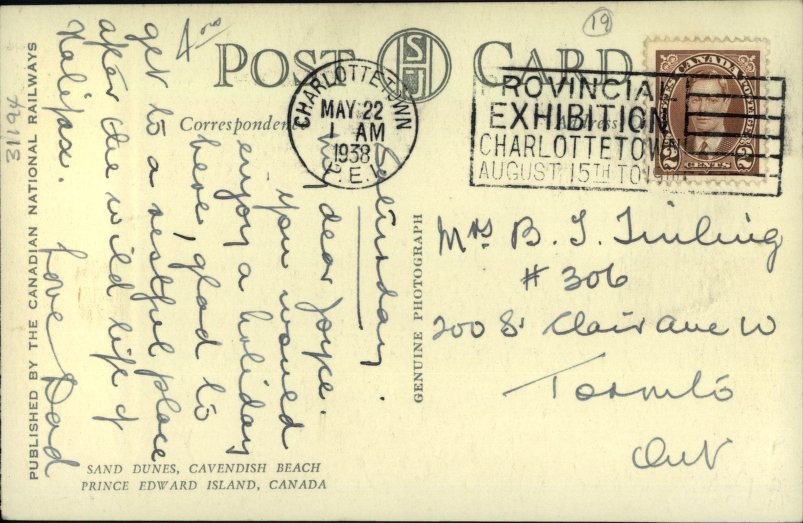 19
4.00
POST CARD
SHJ
CHARLOTTETOWN
MAY 22
1 AM
1938
P.E.I.
ROVINCIAL
EXHIBITION
CHARLOTTETOWN
AUGUST 15TH TO 19TH
CANADA POSTES POSTAGE
2 CENTS 2
Correspondence
Address
Saturday.
My dear Joyce.
you would
enjoy a holiday
here, glad to
get to a restful place
after the wild life of
Halifax.
Love Dad
Mrs B. J. Tinling
# 306
200 St Clair Ave W
Toronto
Ont
GENUINE PHOTOGRAPH
PUBLISHED BY THE CANADIAN NATIONAL RAILWAYS
31194
SAND DUNES, CAVENDISH BEACH
PRINCE EDWARD ISLAND, CANADA